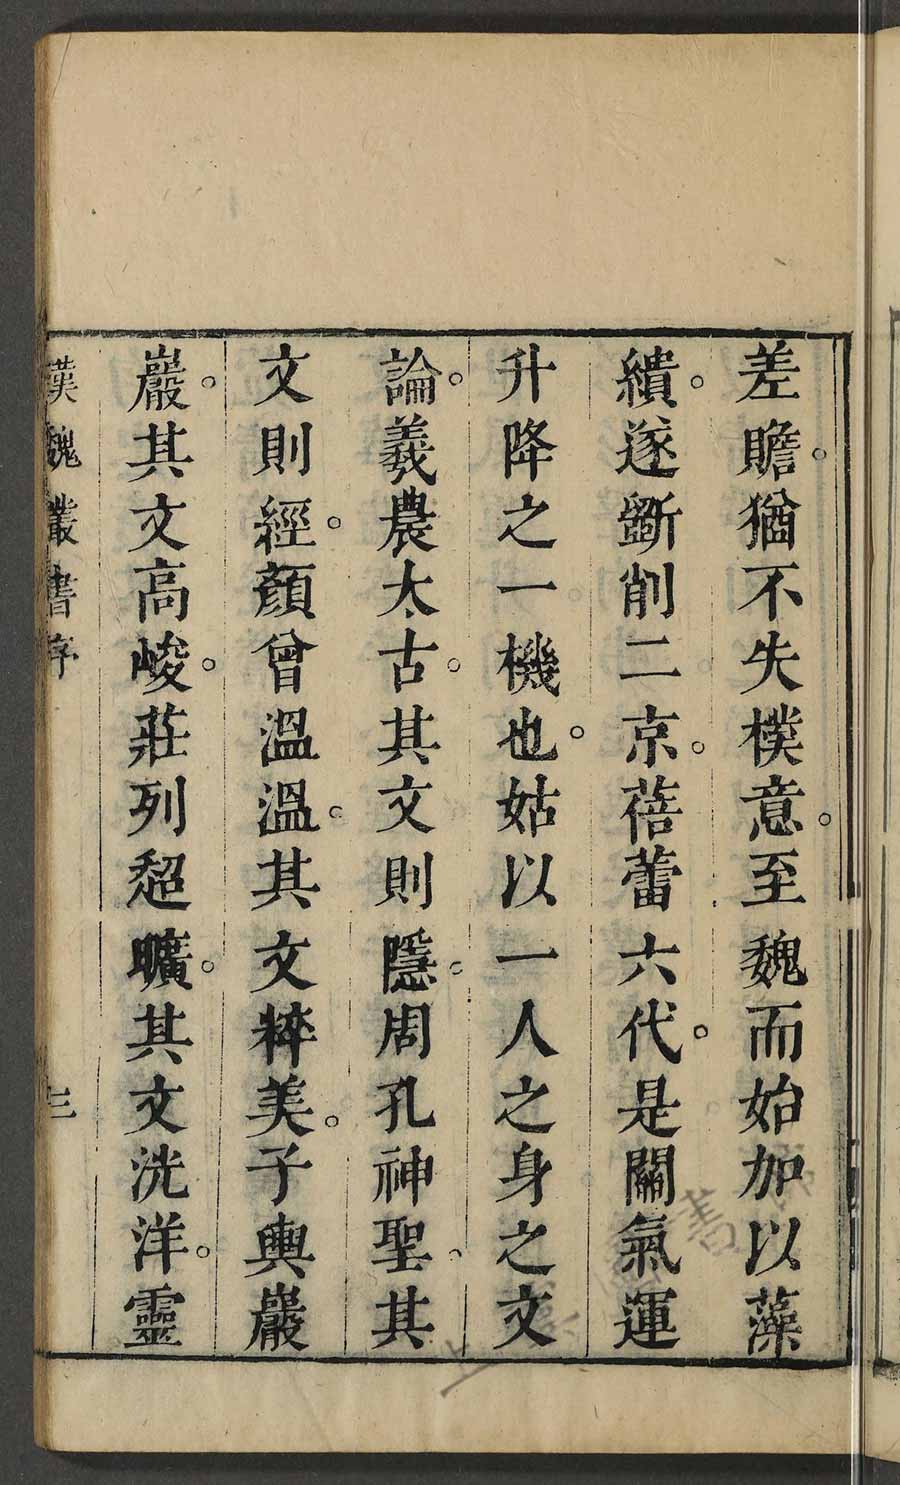 差贍。猶不失樸意。至魏而始加以藻
繢。遂斲削二京。蓓蕾六代。是關氣運
升降之一機也。姑以一人之身之文
論。羲農太古。其文則隱。周孔神聖。其
文則經。顏曾溫溫。其文粹美。子輿巖
巖。其文高峻。莊列超曠。其文洸洋。靈
漢魏叢書序
三